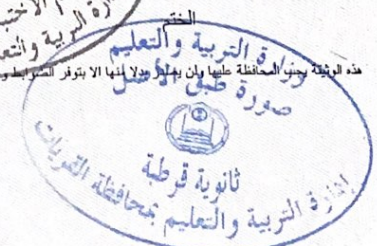 الاختب
وزارة التربية والتع
الختم
هذه الوثيقة يجب المحافظة عليها ولن يعطى بدلا منها الا بتوفر الضوابط و
وزارة التربية والتعليم
صورة طبق الأصل
ثانوية قرطبة
إدارة التربية والتعليم بمحافظة القريات